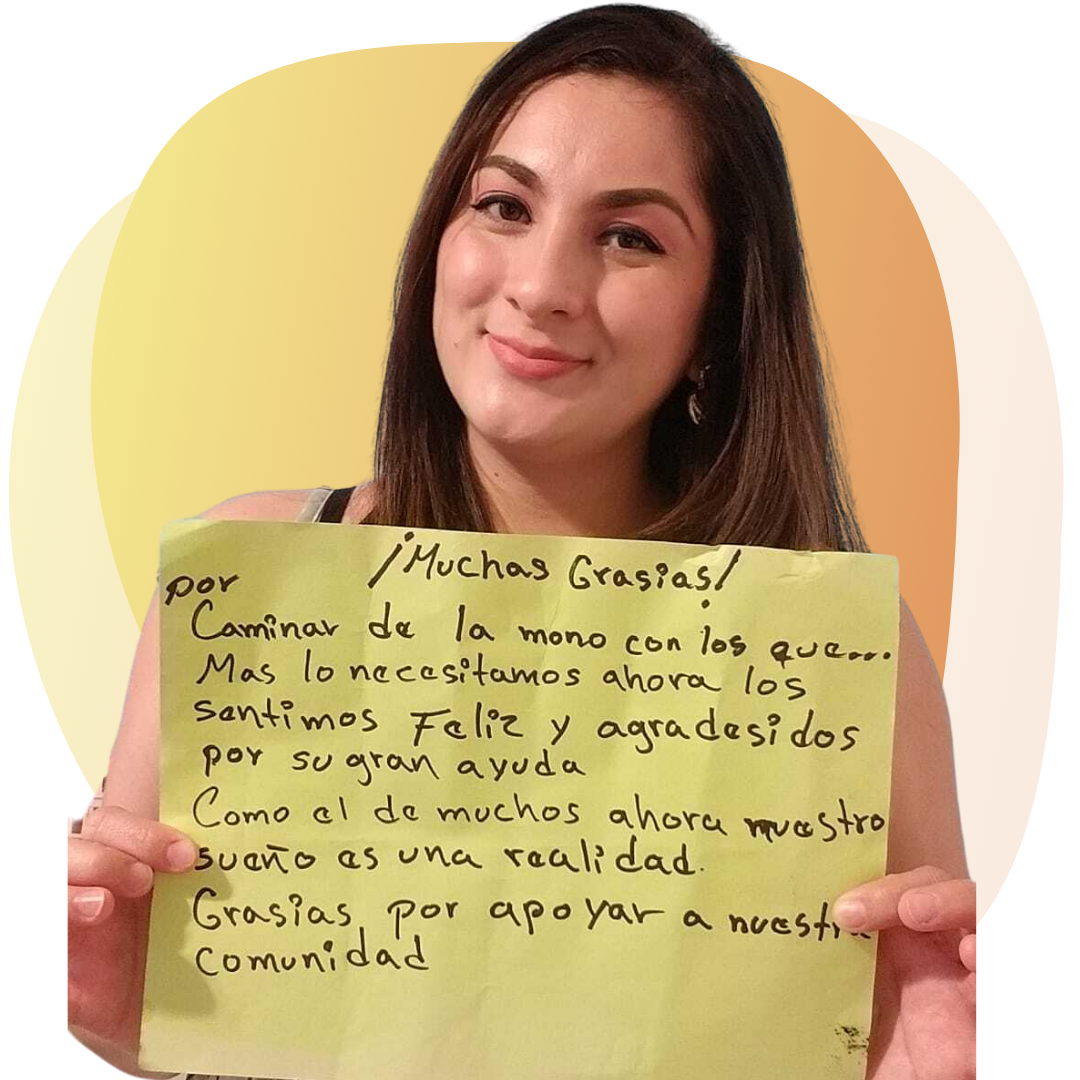 ¡Muchas Grasias!
por
Caminar de la mono con los que...
Mas lo necesitamos ahora los
sentimos Feliz y agradesidos
por su gran ayuda
Como el de muchos ahora nuestro
sueño es una realidad.
Grasias por apoyar a nuestra
comunidad